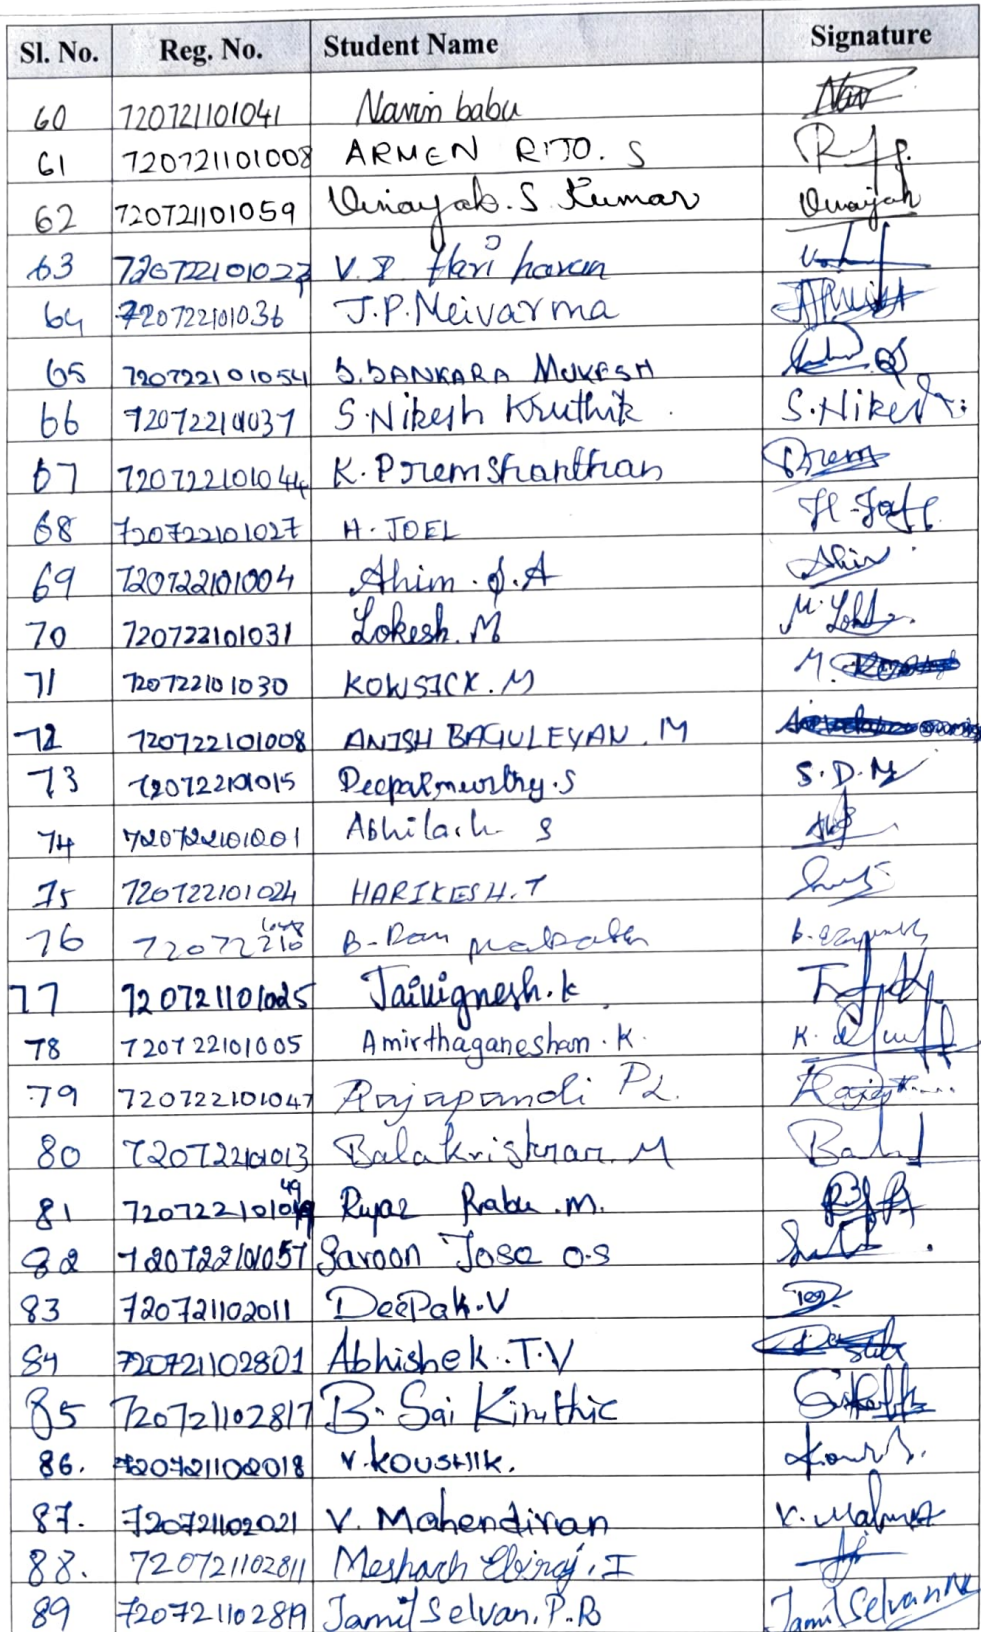 Sl. No. Reg. No. Student Name Signature
60 720721101041 Navin babu Nav
61 720721101008 ARMEN RIJO. S
62 720721101059 Vinayak. S Kumar Vinayak
63 V. Hari haran
64 720722101036 J.P. Meivarma
65 720722101054 S. SANKARA MUKESH
66 720722101037 S. Nikesh Kruthik S. Nikesh
67 720722101044 K. Premshanthan Prem
68 720722101027 H. JOEL
69 720722101004 Ahim . J. A Ahim
70 720722101031 Lokesh. M
71 720722101030 KOWSICK. M M.
72 720722101008 ANISH BAGULEYAN. M
73 720722101015 Deepakmurthy. S S. D. M
74 720722101001 Abhilash S
75 720722101024 HARIKESH. T
76 B- Ram prabakar
77 720721101025 Jaivignesh. k
78 720722101005 Amirthaganeshan. K. K.
79 720722101047 Rajapandi P L.
80 720722101013 Balakrishnan. M Bala
81 Babu . M.
82 720722101057 Saroon Jose O.S
83 720721102011 DeePak. V
84 720721102801 Abhishek. T. V
85 720721102817 B. Sai Kiruthic
86. 720721102018 V. KOUSHIK.
87. 720721102021 V. Mahendiran
88. 720721102811 Meshach Ebiraj. I
89 720721102819 Tamil Selvan. P. B Tamil Selvan